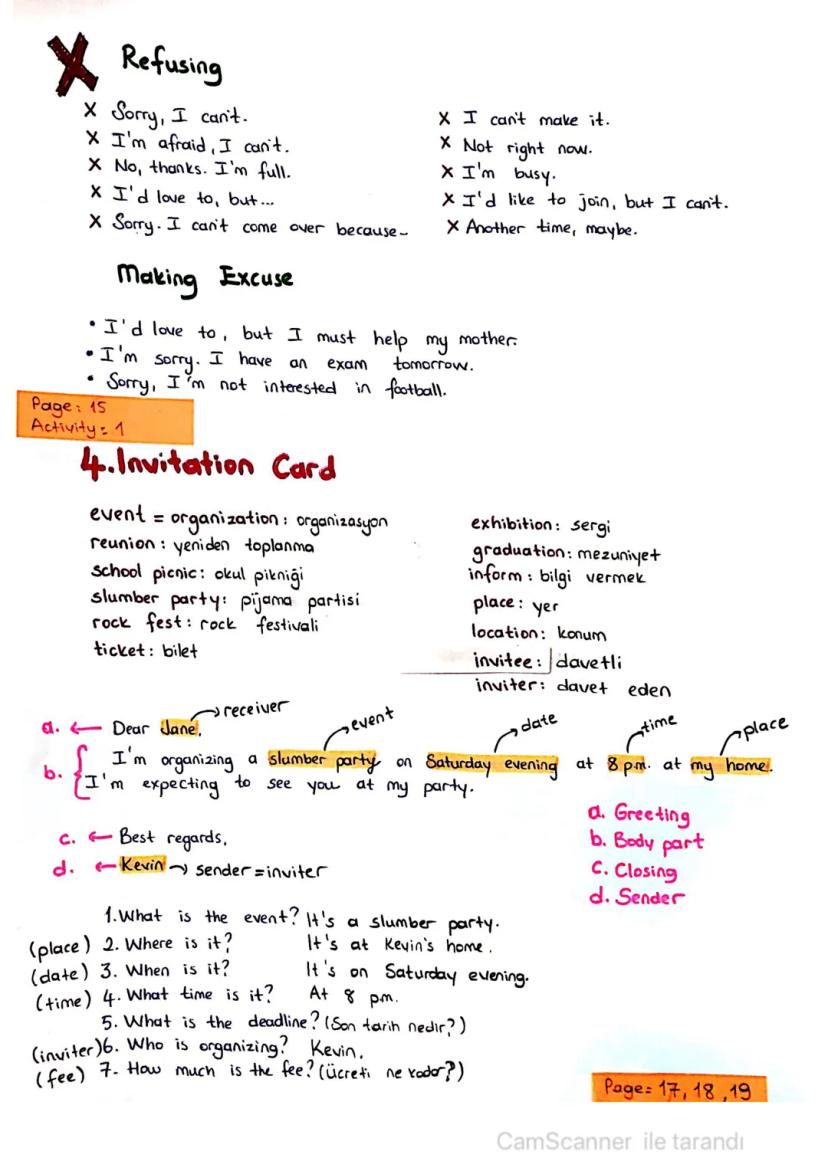 X Refusing
X Sorry, I can't.
X I'm afraid, I can't.
X No, thanks. I'm full.
X I'd love to, but...
X Sorry. I can't come over because...
X I can't make it.
X Not right now.
X I'm busy.
X I'd like to join, but I can't.
X Another time, maybe.
Making Excuse
• I'd love to, but I must help my mother.
• I'm sorry. I have an exam tomorrow.
• Sorry, I'm not interested in football.
Page: 15
Activity: 1
4. Invitation Card
event = organization: organizasyon
reunion: yeniden toplanma
school picnic: okul pikniği
slumber party: pijama partisi
rock fest: rock festivali
ticket: bilet
exhibition: sergi
graduation: mezuniyet
inform: bilgi vermek
place: yer
location: konum
invitee: davetli
inviter: davet eden
a. ← Dear Jane, → receiver
event date time place
b. { I'm organizing a slumber party on Saturday evening at 8 pm. at my home.
I'm expecting to see you at my party.
c. ← Best regards,
d. ← Kevin → sender = inviter
a. Greeting
b. Body part
c. Closing
d. Sender
1. What is the event? It's a slumber party.
(place) 2. Where is it? It's at Kevin's home.
(date) 3. When is it? It's on Saturday evening.
(time) 4. What time is it? At 8 pm.
5. What is the deadline? (Son tarih nedir?)
(inviter) 6. Who is organizing? Kevin.
(fee) 7. How much is the fee? (ücreti ne kadar?)
Page= 17, 18, 19
CamScanner ile tarandı